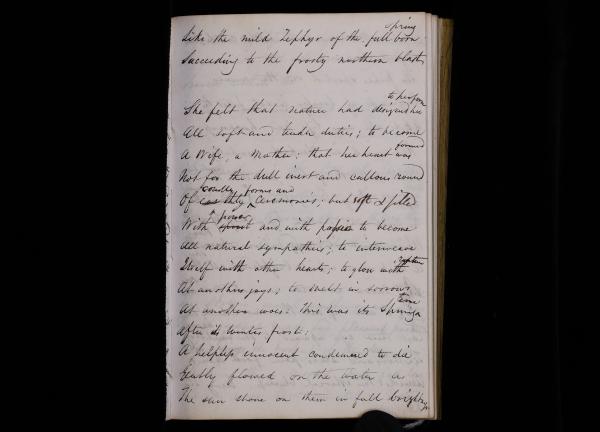 spring
Like the mild Zephyr of the full born
Succeeding to the frosty northern blasts
to perform
She felt that nature had designed her
All soft and tender duties; to become
formed
A Wife, a Mother: that her heart was
Not for the dull inert and callous round
courtly forms and
Of Ceremonies; but soft & filled
power
With and with passion to become
All natural sympathies; to interweave
rapture
Itself with other hearts; to glow with
At anothers joys; to melt in sorrows
time
At anothers woes. This was its Spring
After its Winter frost:
A helpless innocent condemned to die
Gently flowed on the water as
The sun shone on them in full